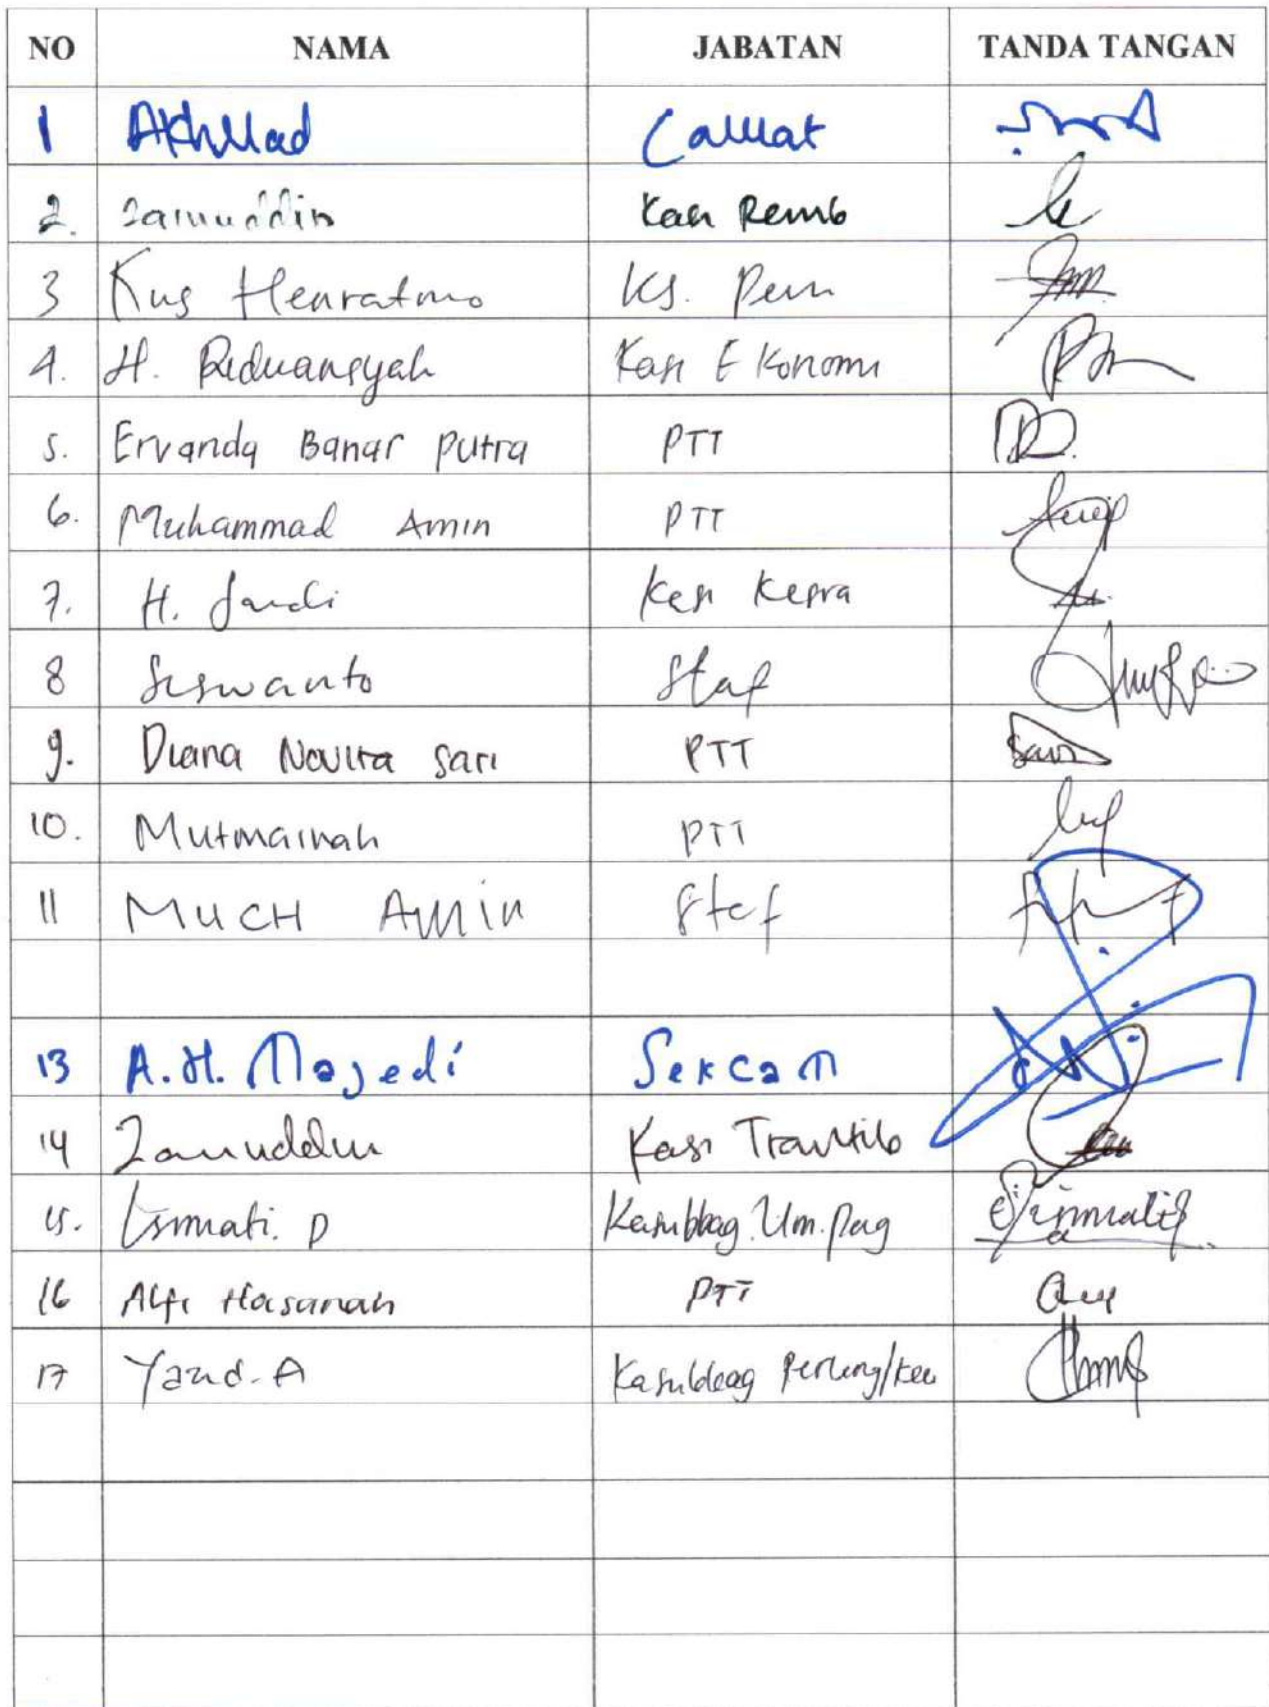 NO NAMA JABATAN TANDA TANGAN
1 Akhmad Camat
2. Zainuddin Kasi Pemb
3 Kus Henratmo KS. Pem
4. H. Riduansyah Kasi Ekonomi
5. Ervanda Banar Putra PTT
6. Muhammad Amin PTT
7. H. Kasi Kesra
8 Siswanto Staf
9. Diana Novita Sari PTT
10. Mutmainah PTT
11 MUCH AMIN Staf
13 A.H. Majedi Sekcam
14 Zainuddin Kasi Trantib
15. Ismiati. P Kasubbag. Um. Peg
16 Alfi Hasanah PTT
17 Kasubbag